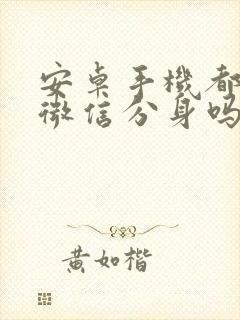 安卓手機都
微信分身吗
黄如楷